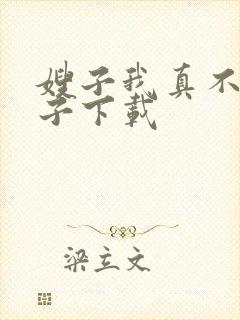 嫂子我真不
子下载
梁立文